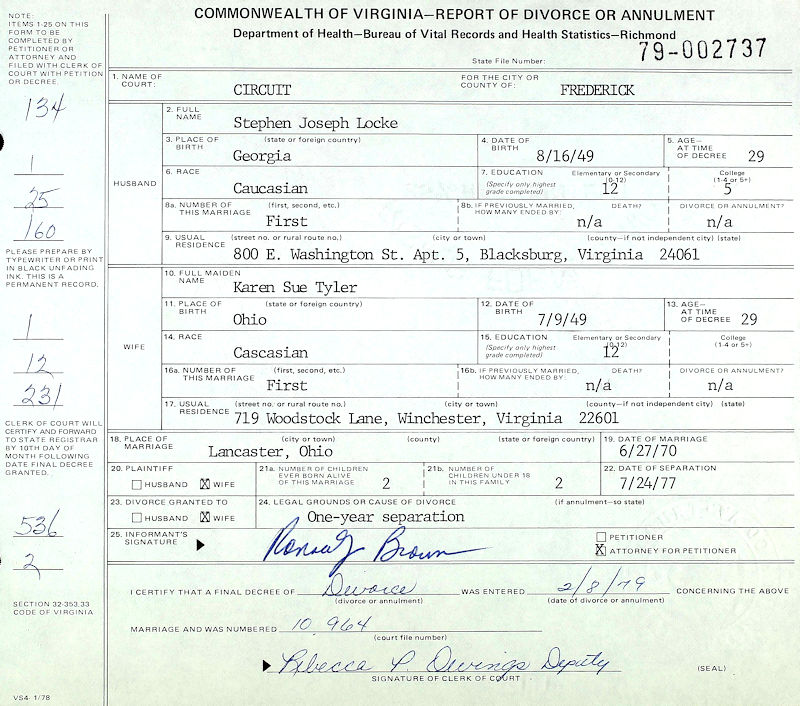 COMMONWEALTH OF VIRGINIA—REPORT OF DIVORCE OR ANNULMENT
Department of Health—Bureau of Vital Records and Health Statistics—Richmond
State File Number: 79-002737
NOTE:
ITEMS 1-25 ON THIS
FORM TO BE
COMPLETED BY
PETITIONER OR
ATTORNEY AND
FILED WITH CLERK OF
COURT WITH PETITION
OR DECREE.
134
1
25
160
PLEASE PREPARE BY
TYPEWRITER OR PRINT
IN BLACK UNFADING
INK. THIS IS A
PERMANENT RECORD.
1
12
231
CLERK OF COURT WILL
CERTIFY AND FORWARD
TO STATE REGISTRAR
BY 10TH DAY OF
MONTH FOLLOWING
DATE FINAL DECREE
GRANTED.
536
2
SECTION 32-353.33
CODE OF VIRGINIA
VS4 1/78
1. NAME OF COURT: CIRCUIT FOR THE CITY OR COUNTY OF: FREDERICK
HUSBAND
2. FULL NAME Stephen Joseph Locke
3. PLACE OF BIRTH (state or foreign country) Georgia 4. DATE OF BIRTH 8/16/49 5. AGE— AT TIME OF DECREE 29
6. RACE Caucasian 7. EDUCATION (Specify only highest grade completed) Elementary or Secondary (0-12) 12 College (1-4 or 5+) 5
8a. NUMBER OF THIS MARRIAGE (first, second, etc.) First 8b. IF PREVIOUSLY MARRIED, HOW MANY ENDED BY: DEATH? n/a DIVORCE OR ANNULMENT? n/a
9. USUAL RESIDENCE (street no. or rural route no.) (city or town) (county—if not independent city) (state)
800 E. Washington St. Apt. 5, Blacksburg, Virginia 24061
WIFE
10. FULL MAIDEN NAME Karen Sue Tyler
11. PLACE OF BIRTH (state or foreign country) Ohio 12. DATE OF BIRTH 7/9/49 13. AGE— AT TIME OF DECREE 29
14. RACE Cascasian 15. EDUCATION (Specify only highest grade completed) Elementary or Secondary (0-12) 12 College (1-4 or 5+)
16a. NUMBER OF THIS MARRIAGE (first, second, etc.) First 16b. IF PREVIOUSLY MARRIED, HOW MANY ENDED BY: DEATH? n/a DIVORCE OR ANNULMENT? n/a
17. USUAL RESIDENCE (street no. or rural route no.) (city or town) (county—if not independent city) (state)
719 Woodstock Lane, Winchester, Virginia 22601
18. PLACE OF MARRIAGE (city or town) (county) (state or foreign country) Lancaster, Ohio 19. DATE OF MARRIAGE 6/27/70
20. PLAINTIFF HUSBAND X WIFE 21a. NUMBER OF CHILDREN EVER BORN ALIVE OF THIS MARRIAGE 2 21b. NUMBER OF CHILDREN UNDER 18 IN THIS FAMILY 2 22. DATE OF SEPARATION 7/24/77
23. DIVORCE GRANTED TO HUSBAND X WIFE 24. LEGAL GROUNDS OR CAUSE OF DIVORCE (if annulment—so state) One-year separation
25. INFORMANT'S SIGNATURE Brown PETITIONER X ATTORNEY FOR PETITIONER
I CERTIFY THAT A FINAL DECREE OF Divorce WAS ENTERED 2/8/79 CONCERNING THE ABOVE
(divorce or annulment) (date of divorce or annulment)
MARRIAGE AND WAS NUMBERED 10 964
(court file number)
Rebecca P. Owings Deputy (SEAL)
SIGNATURE OF CLERK OF COURT